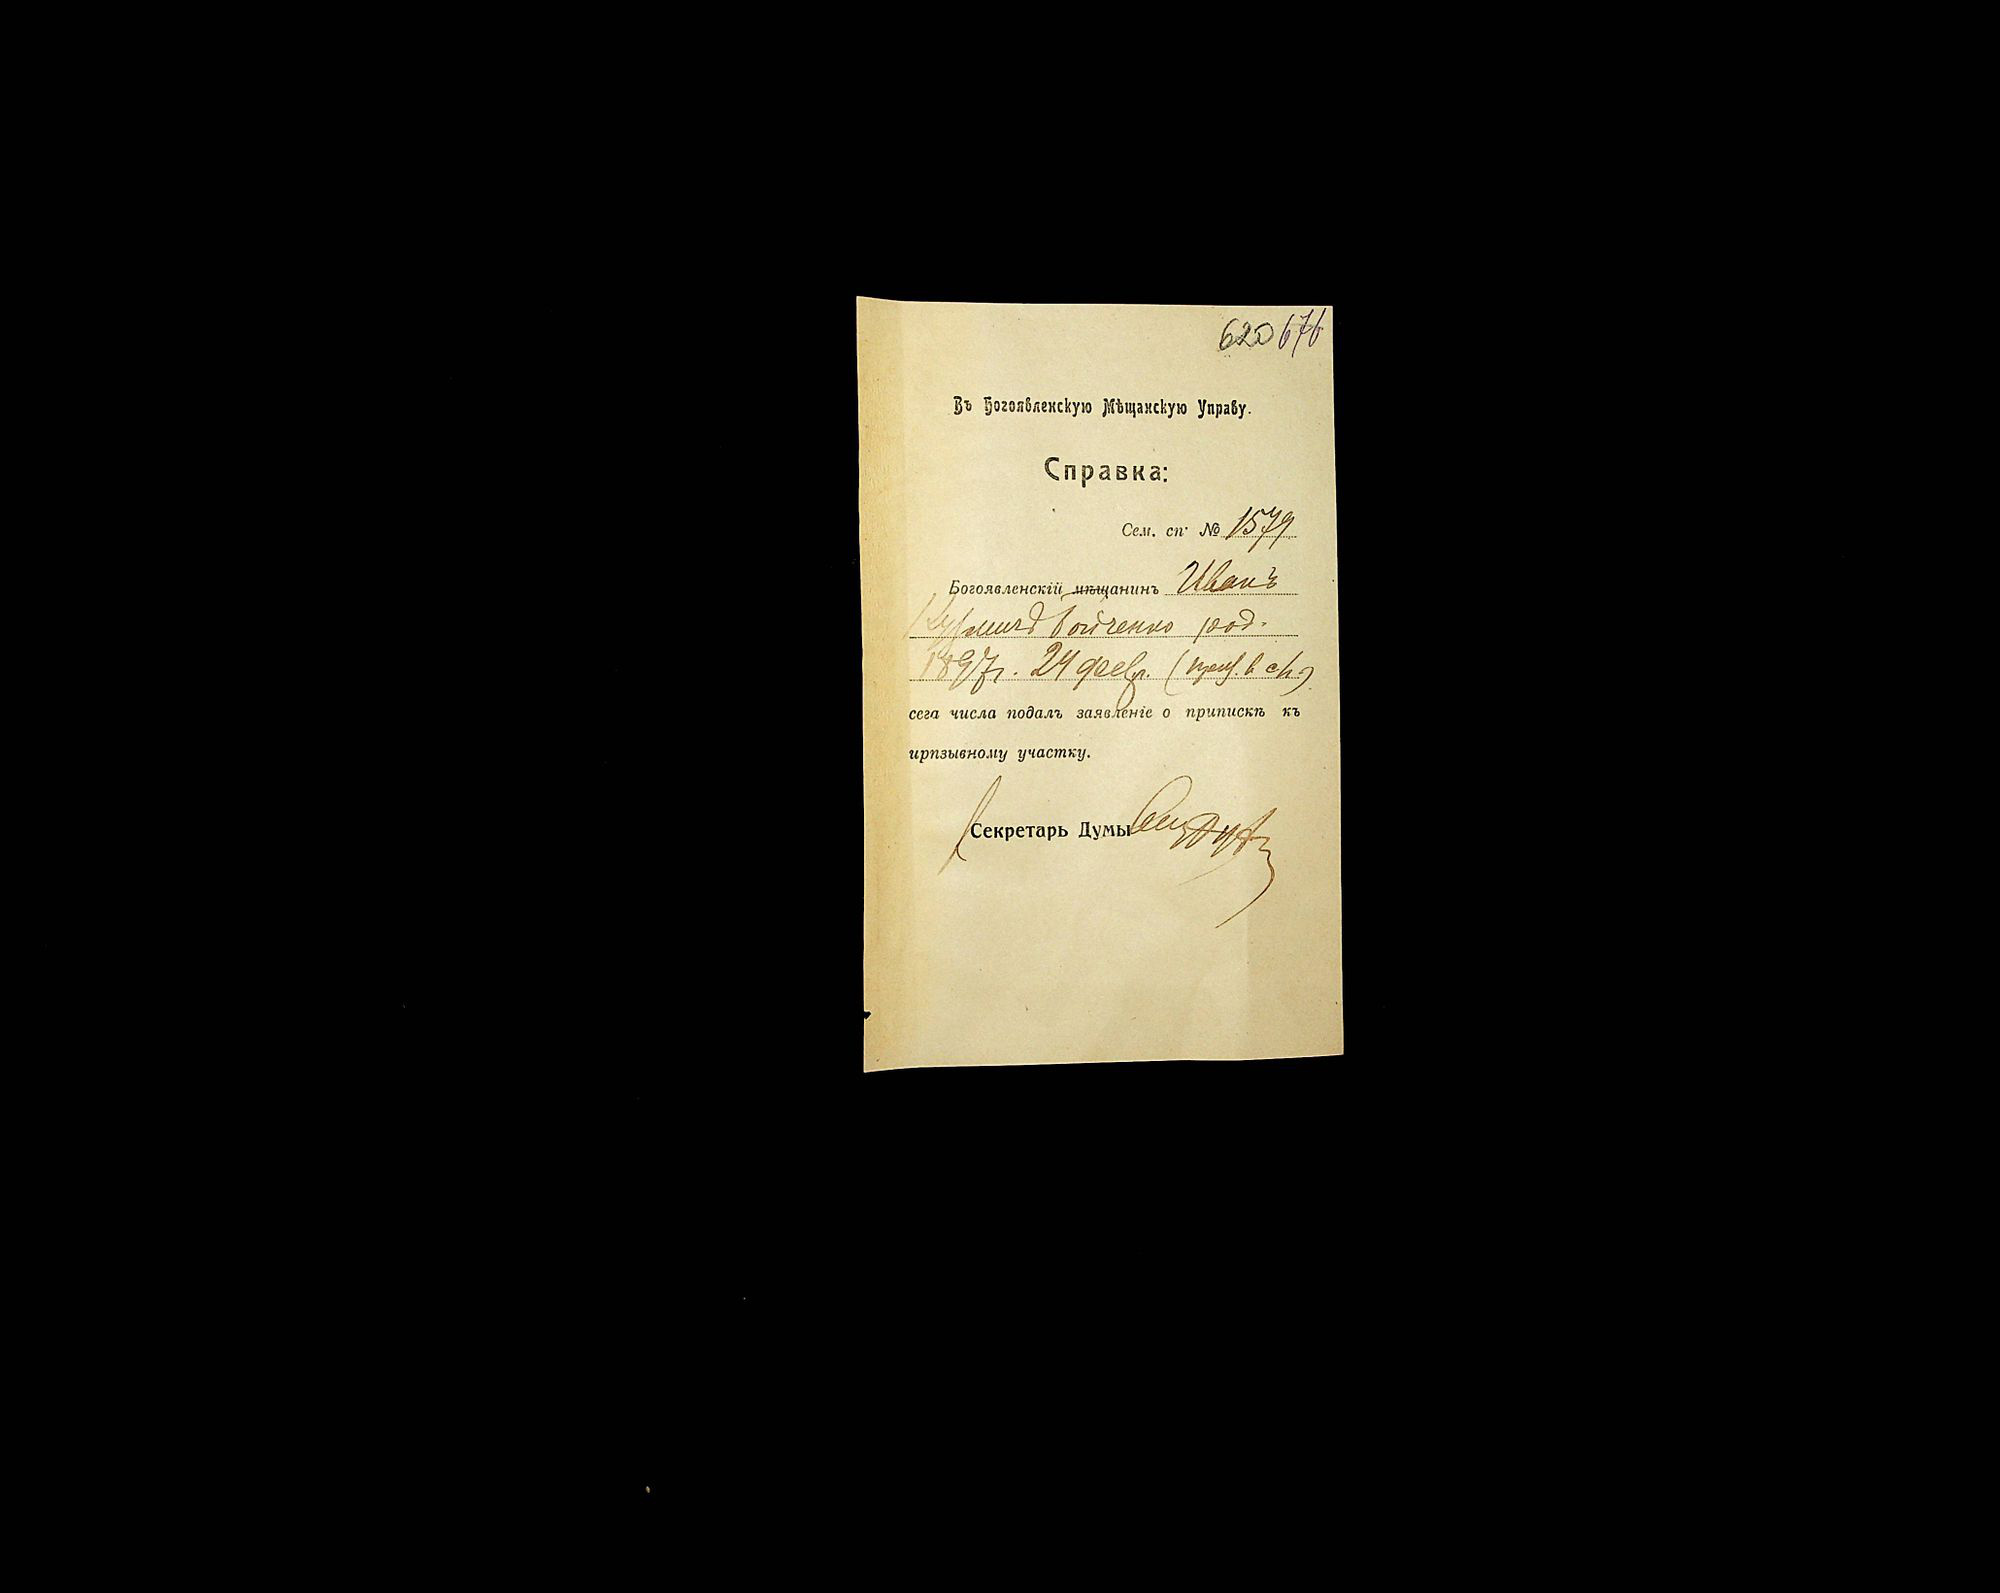 620 676
Въ Богоявленскую Мѣщанскую Управу.
Справка:
Сем. сп. № 1579
Богоявленскій мѣщанинъ Иванъ
Бойченко род.
1897г. 24 февр. (
сега числа подалъ заявленіе о припискѣ къ
ирпзывному участку.
Секретарь Думы